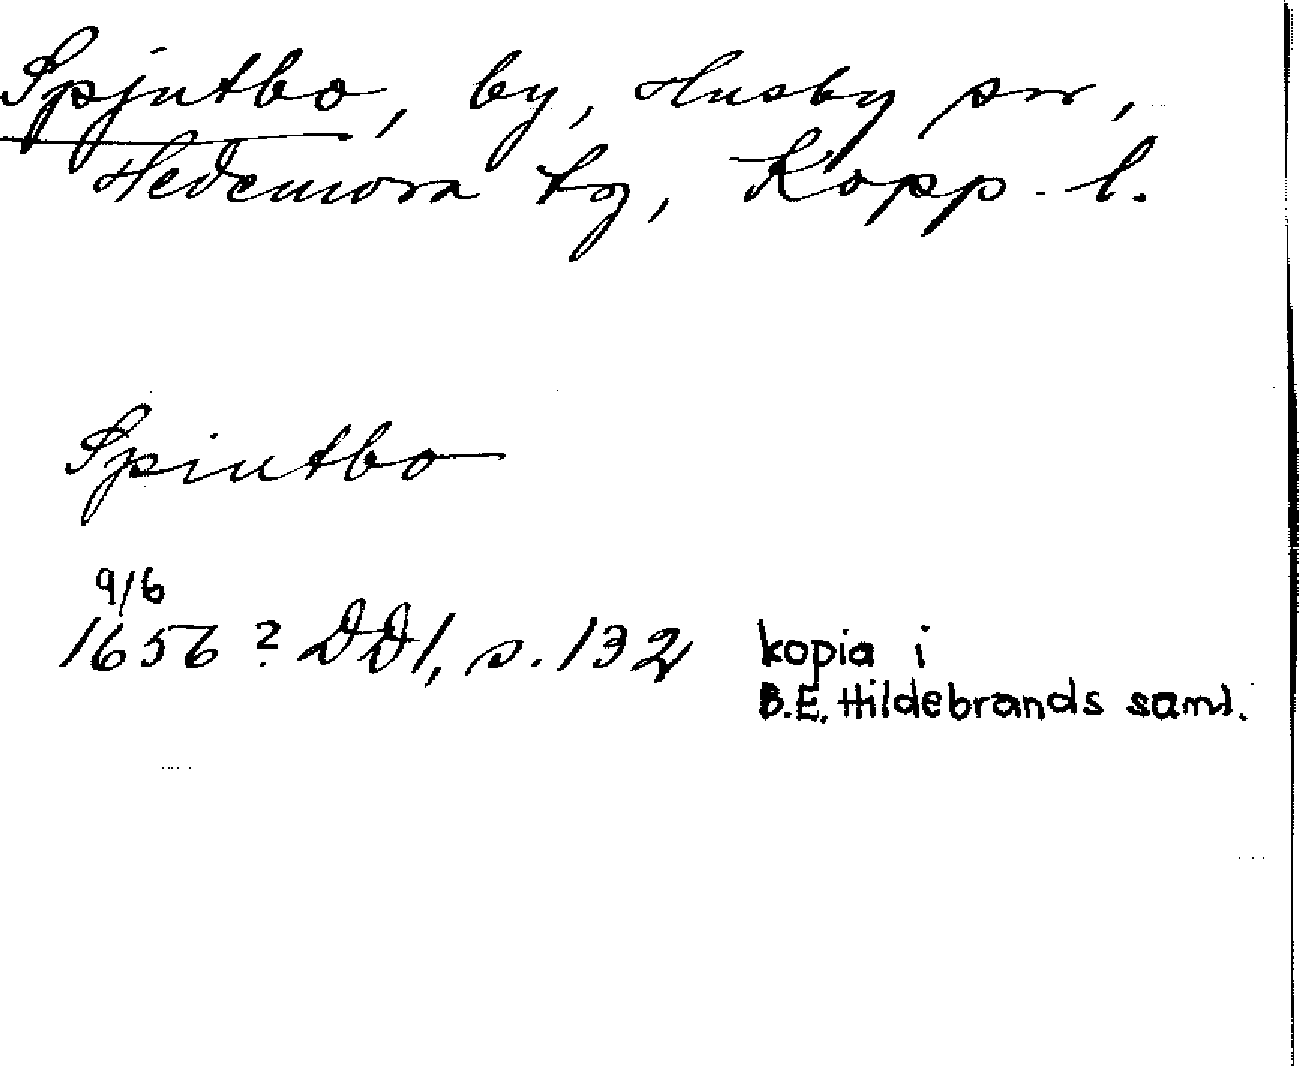 Spjutbo, by, Husby sn,
Hedemora tg, Kopp. l.
Spiutbo
9/6
1656? DD1, s. 132 kopia i
B.E. Hildebrands saml.